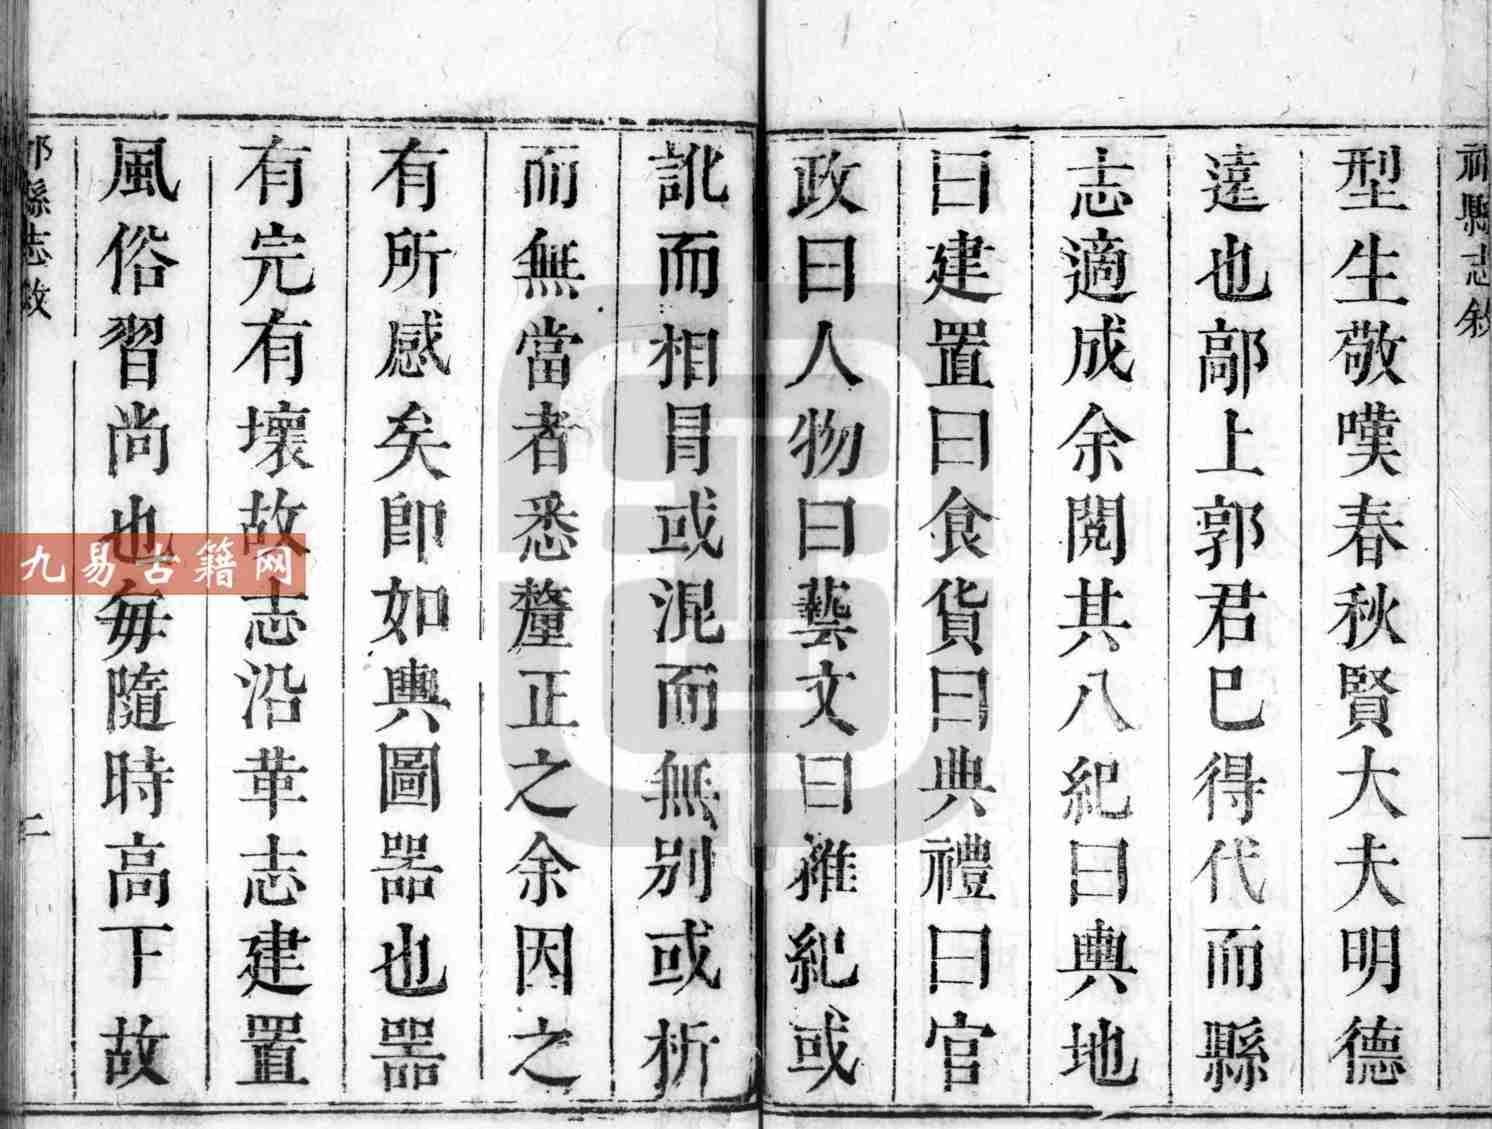 祁縣志敘
一
型生敬嘆春秋賢大夫明德
遠也鄗上郭君巳得代而縣
志適成余閱其八紀曰輿地
曰建置曰食貨曰典禮曰官
政曰人物曰藝文曰雜紀或
訛而相冒或混而無別或析
而無當者悉釐正之余因之
有所感矣即如輿圖器也器
有完有壞故志沿革志建置
風俗習尚也每隨時高下故
祁縣志敘
二
九易古籍网